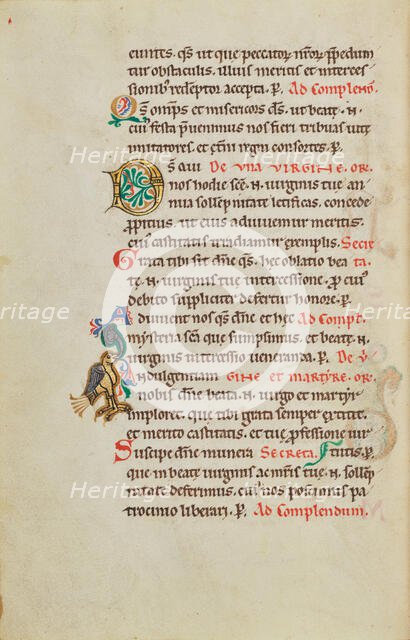 cuntes. qs ut que peccator nror ppedun
tur obstaculis. illius meritis et interces
sionibus redemptor accepta. p. Ad Complend.
Qs omps et misericors ds. ut beate. N.
cui festa puenimus nos fieri tribuas uite
imitatores. et etni regni consortes. p.
DS QUI DE UNA VIRGINE. OR.
nos hodie sce. N. virginis tue an
nua sollepnitate letificas. concede
ppitius. ut eius adiuuemur meritis.
cui castitatis irradiamur exemplis. Secre
Grata tibi sit dne qs. hec oblatio bea ta.
te. N. uirginis tue intercessione. p cui
debito suppliciter defertur honore. p.
Adiuuent nos qs dne et hec Ad Compl.
mysteria sca que sumpsimus. et beate. N.
uirginis intercessio ueneranda. p. De V
Indulgentiam GINE et martyre. or.
nobis dne beata. N. uirgo et martyr
imploret. que tibi grata semper extitit.
et merito castitatis. et tue pfessione uir
Suscipe dne munera Secreta. tutis. p.
que in beate uirginis ac mris tue. N. sollep
nitate deferimus. cui nos patrocinio liberari. p. Ad Complendum.
Heritage
Heritage
Heritage
Heritage
Heritage
Heritage